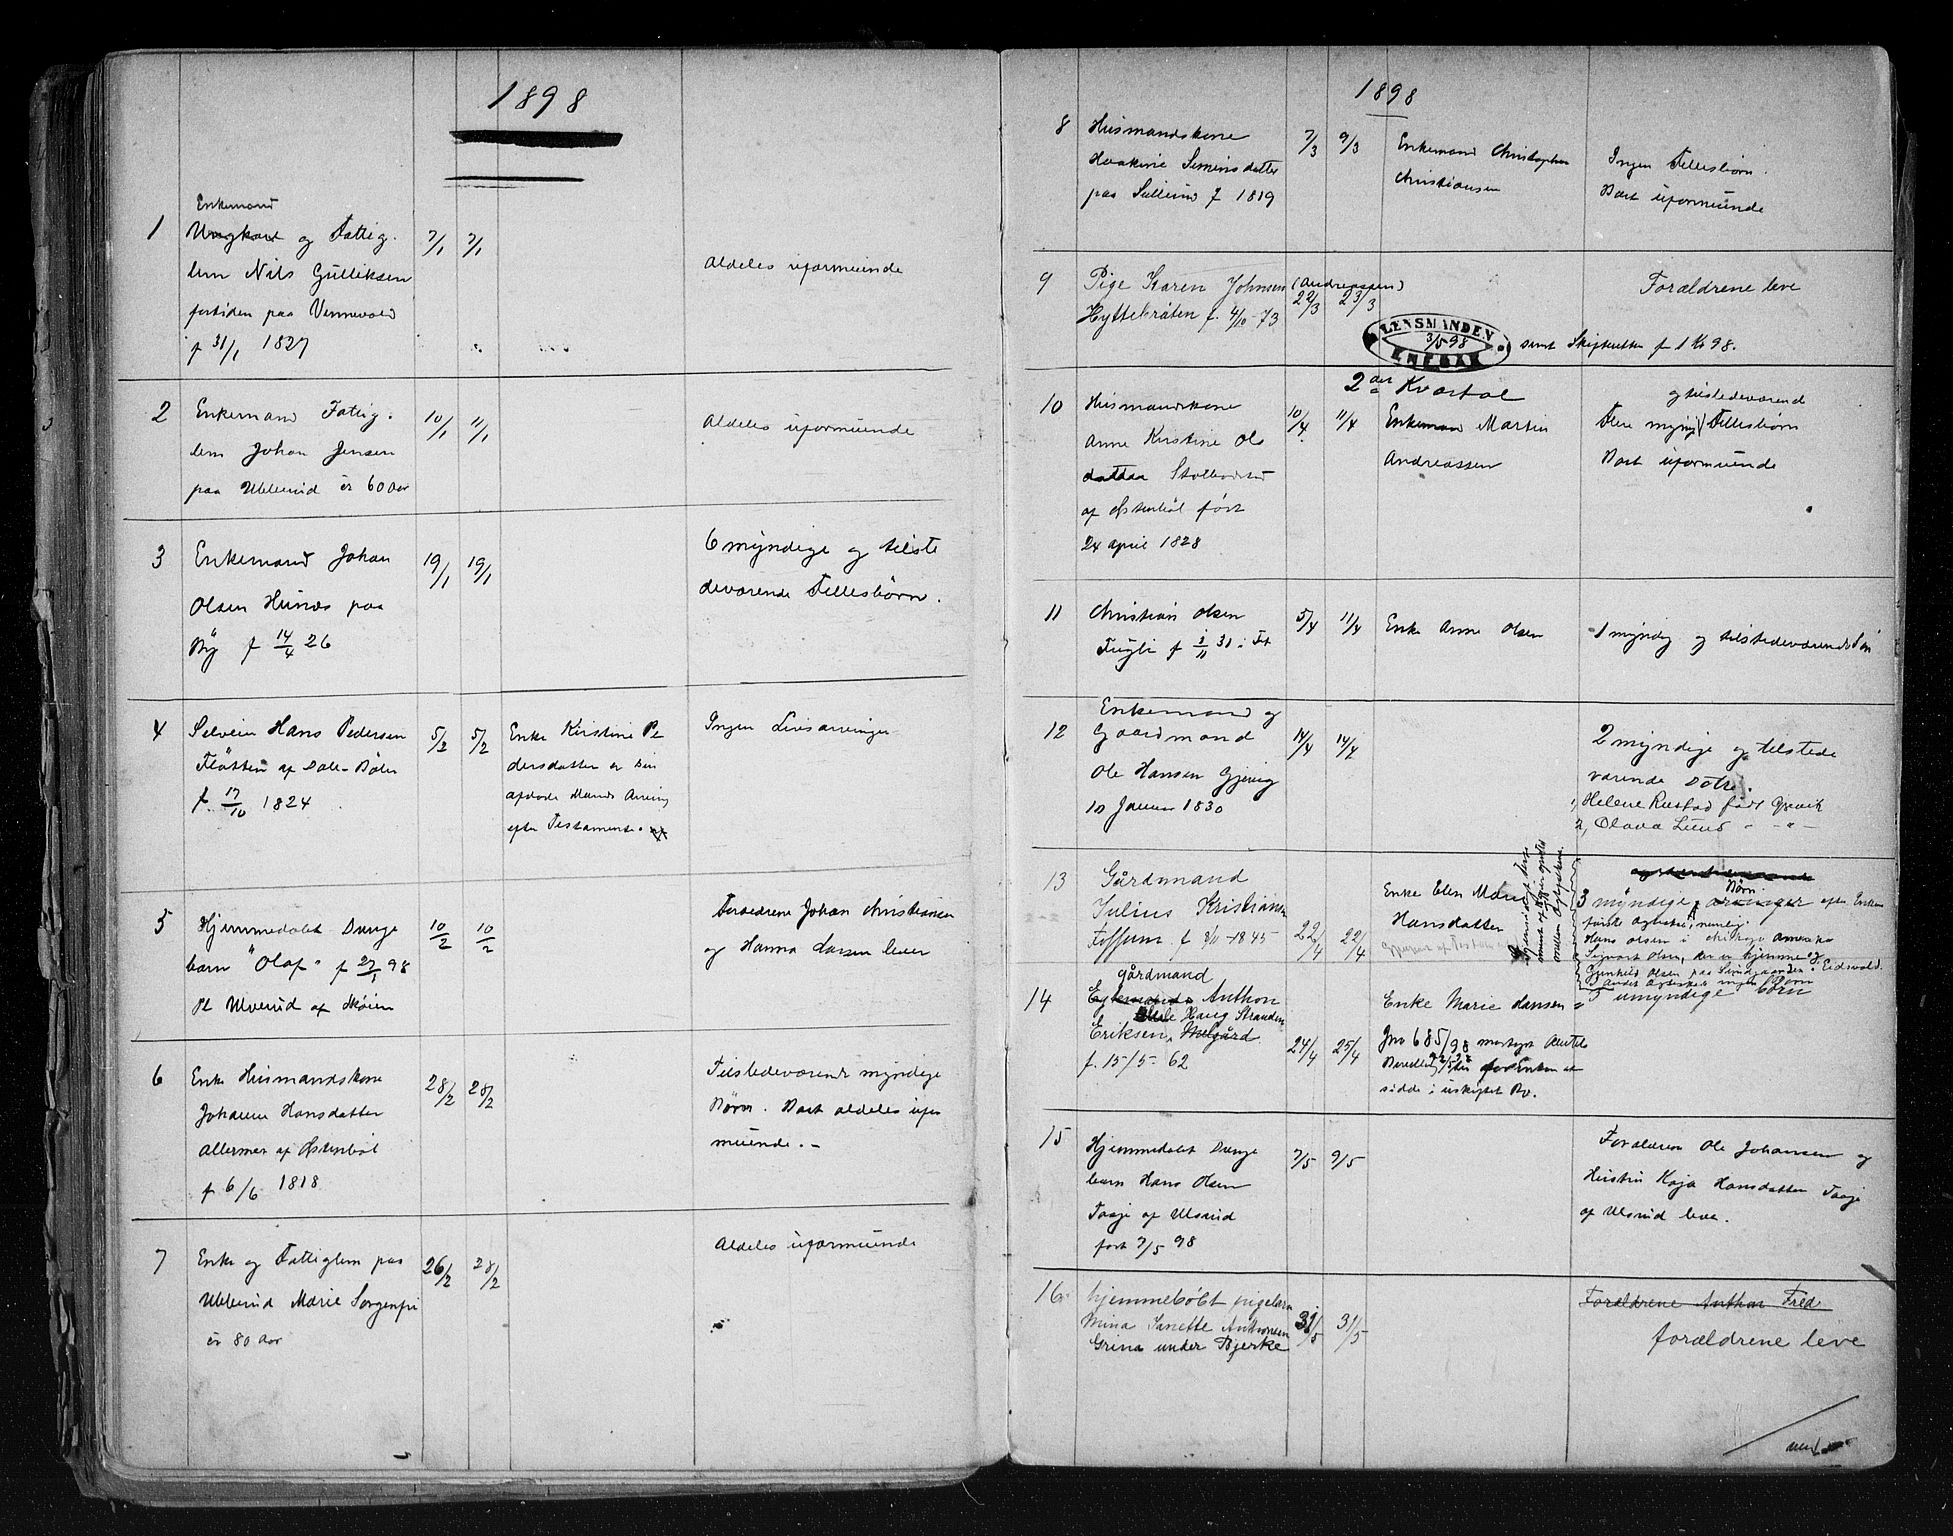 1898
1
Enkemand
Ungkarl og Fattig-
lem Nils Gulliksen
fortiden paa Vennevold
f 31/1 1827
7/1
7/1
Aldeles uformuende
2
Enkemand Fattig-
lem Johan Jensen
paa Ubberud er 60 Aar
10/1
11/1
Aldeles uformuende
3
Enkemand Johan
Olsen Hunæs paa
By f 14/4 26
19/1
19/1
6 myndige og tilste
deværende Fellesbørn.
4
Selveier Hans Pedersen
Flåtten af Dale-Böler
f. 17/10 1824
5/2
5/2
Enke Kirstine Pe
dersdatter er sin
afdøde Mands Arving
efter Testamente.
Ingen Livsarvinger
5
Hjemmedøbt Drenge
barn "Olaf" f 27/1 98
Pl Ulverud af Skøien
10/2
10/2
Foreldrene Johan Christiansen
og Hanna Larsen lever
6
Enke Husmandskone
Johanne Hansdatter
Allermor af Østenbøl
f 6/6 1818
28/2
28/2
Tilstedeværende myndige
Børn. Boet aldeles ufor
muende. -
7
Enke og Fattiglem paa
Ubberud Marie Sorgenfri
er 80 Aar
26/2
28/2
Aldeles uformuende
1898
8
Husmandskone
Haakine Simensdatter
paa f 1819
7/3
9/3
Enkemand Christopher
Christiansen
Ingen Fellesbørn.
Boet uformuende
9
Pige Karen Johnsen (Andreassen)
Hyttebråten f. 4/10-73
22/3
23/3
Forældrene leve
LENSMANDEN
3/5 98
ENEBAK
sendt Skifteretten f 1 Kv 98.
2det Kvartal
10
Husmandskone
Anne Kirstine Ols
datter
af Østenbøl født
24 april 1828
10/4
11/4
Enkemand Martin
Andreassen
og tilstedeværend
Flere mynd Fellesbørn
Boet uformuende
11
Christian Olsen
Fugli f 3/11 31 i Fet
5/4
11/4
Enke Anne Olsen
1 myndig og tilstedeværende Søn
12
Enkemand og
Gaardmand
Ole Hansen Gjevig
10 Januar 1830
14/4
14/4
2 myndige og tilstede
værende Døtre.
1, Helene Rustad født Gjevik
2, Olava Lund " - " -
13
Gårdmand
Julius Kristians
Fossum. f. 8/11-1845
22/4
22/4
Enke Elen Marie
Hansdatter
Børn
3 myndige arvinger efter Enkens
første Egteskab, nemlig:
Hans Olsen i Chikago Amerika
Sigvart Olsen, der er hjemme og
Gunhild Olsen paa i Eidsvold.
I andet Egteskab ingen Børn
14
gårdmand
Anthon
Haug Stranden
Eriksen, Melgård
f. 15/5-62
24/4
25/4
Enke Marie Hansen
Jno 685/98 modtaget
for Enken at
sidde i uskiftet Bo.
5 umyndige børn
15
Hjemmedøbt Drenge
barn Hans Olsen
Taaje af Ulsrud
født 7/5 98
7/5
9/5
Forældren Ole Johansen og
Kirstin Kaja Hansdatter Taaje
af Ulsrud leve.
16
hjemmedøbt pigebarn
Mina Janette Anthonsen
Grina under Bjerke
31/5
31/5
Forældrene Anthon Fred
forældrene leve